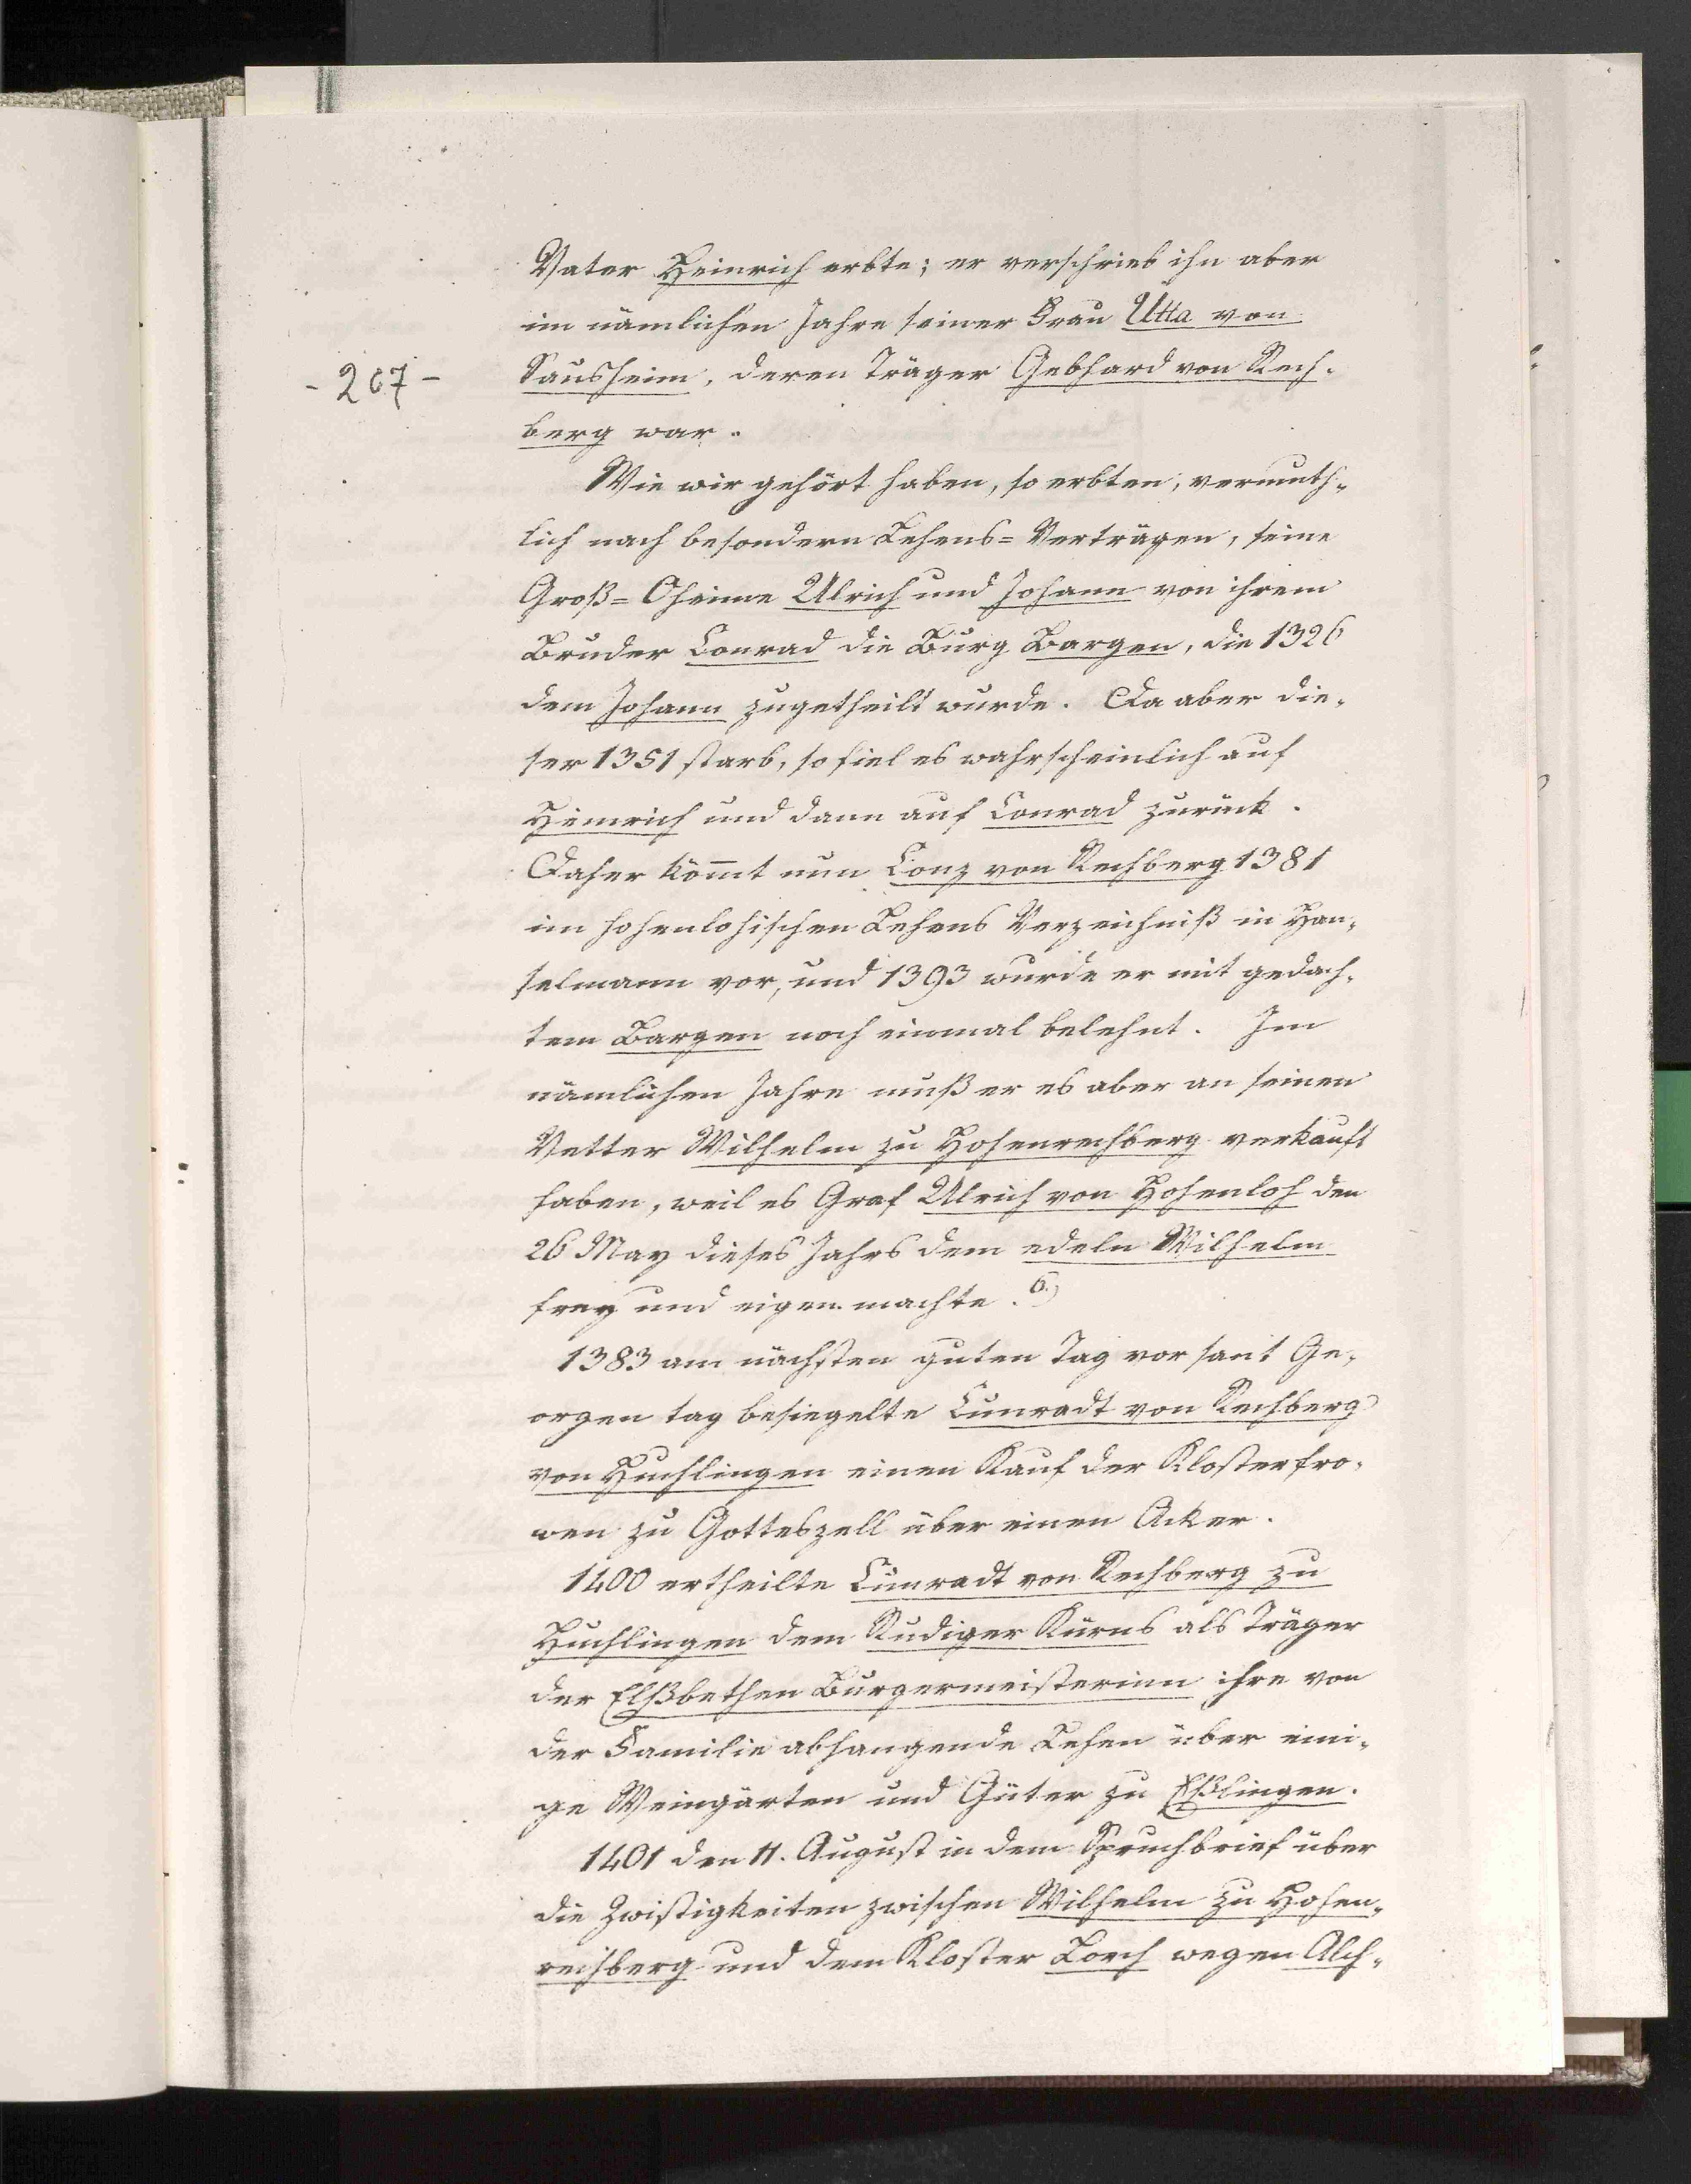 Vater Heinrich erbte; er verschrieb ihn aber
im nämlichen Jahre seiner Frau Utta von
- 207 -
Sausheim, deren Träger Gebhard von Rech-
berg war.
Wie wir gehört haben, so erbten, vermuth-
lich nach besondern Lehens-Verträgen, seine
Groß-Oheime Ulrich und Johann von ihrem
Bruder Conrad die Burg Bargen, die 1326
dem Johann zugetheilt wurde. Da aber die-
ser 1351 starb, so fiel es wahrscheinlich auf
Heinrich und dann auf Conrad zurück.
Daher kom̅t nun Conz von Rechberg 1381
im hohenlohischen Lehens Verzeichniß in Han-
selmann vor, und 1393 wurde er mit gedach-
tem Bargen noch einmal belehnt. Im
nämlichen Jahre muß er es aber an seinen
Vetter Wilhelm zu Hohenrechberg verkauft
haben, weil es Graf Ulrich von Hohenloh den
26 May dieses Jahrs dem edeln Wilhelm
frey und eigen machte. 6.)
1383 am nächsten guten Tag vor sant Ge-
orgen tag besiegelte Cunradt von Rechberg
von Huchlingen einen Kauf der Klosterfro-
wen zu Gotteszell über einen Acker.
1400 ertheilte Cunradt von Rechberg zu
Huchlingen dem Rudiger Kürns als Träger
der Elßbethen Burgermeisterinn ihre von
der Familie abhangende Lehen über eini-
ge Weingärten und Güter zu Eßlingen.
1401 den 11. August in dem Spruchbrief über
die Zwistigkeiten zwischen Wilhelm zu Hohen-
rechberg und dem Kloster Lorch wegen Alch-